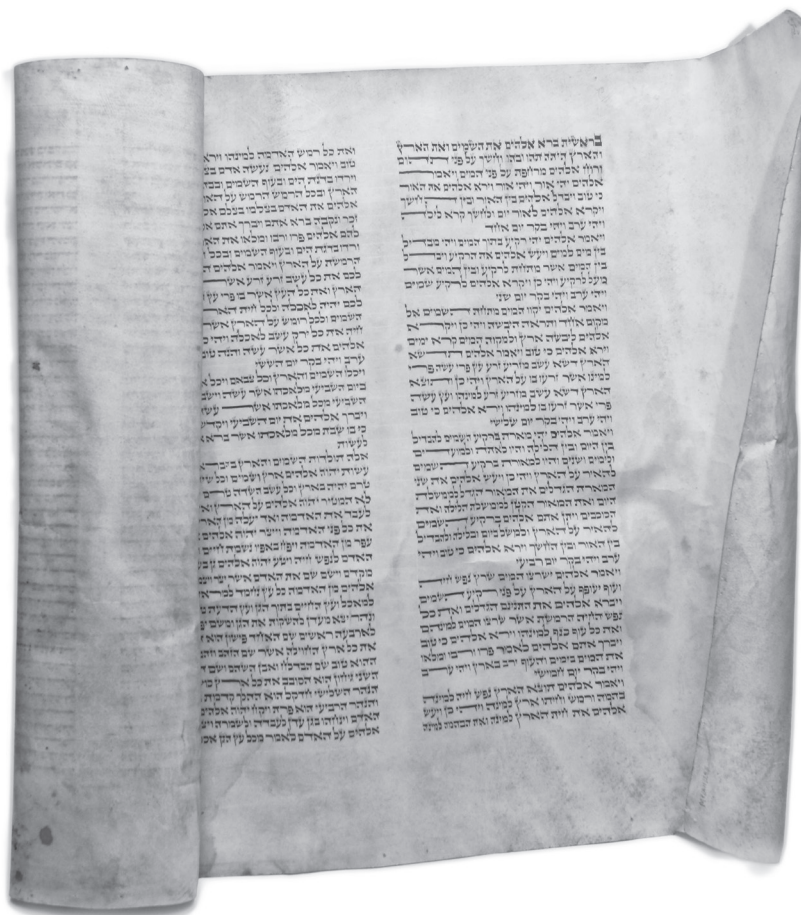 בראשית ברא אלהים את השמים ואת הארץ
והארץ היתה תהו ובהו וחשך על פני תהום
ורוח אלהים מרחפת על פני המים ויאמר
אלהים יהי אור ויהי אור וירא אלהים את האור
כי טוב ויבדל אלהים בין האור ובין החשך
ויקרא אלהים לאור יום ולחשך קרא לילה
ויהי ערב ויהי בקר יום אחד
ויאמר אלהים יהי רקיע בתוך המים ויהי מבדיל
בין מים למים ויעש אלהים את הרקיע ויבדל
בין המים אשר מתחת לרקיע ובין המים אשר
מעל לרקיע ויהי כן ויקרא אלהים לרקיע שמים
ויהי ערב ויהי בקר יום שני
ויאמר אלהים יקוו המים מתחת השמים אל
מקום אחד ותראה היבשה ויהי כן ויקרא
אלהים ליבשה ארץ ולמקוה המים קרא ימים
וירא אלהים כי טוב ויאמר אלהים תדשא
הארץ דשא עשב מזריע זרע עץ פרי עשה פרי
למינו אשר זרעו בו על הארץ ויהי כן ותוצא
הארץ דשא עשב מזריע זרע למינהו ועץ עשה
פרי אשר זרעו בו למינהו וירא אלהים כי טוב
ויהי ערב ויהי בקר יום שלישי
ויאמר אלהים יהי מארת ברקיע השמים להבדיל
בין היום ובין הלילה והיו לאתת ולמועדים
ולימים ושנים והיו למאורת ברקיע השמים
להאיר על הארץ ויהי כן ויעש אלהים את שני
המארת הגדלים את המאור הגדל לממשלת
היום ואת המאור הקטן לממשלת הלילה ואת
הכוכבים ויתן אתם אלהים ברקיע השמים
להאיר על הארץ ולמשל ביום ובלילה ולהבדיל
בין האור ובין החשך וירא אלהים כי טוב ויהי
ערב ויהי בקר יום רביעי
ויאמר אלהים ישרצו המים שרץ נפש חיה
ועוף יעופף על הארץ על פני רקיע השמים
ויברא אלהים את התנינם הגדלים ואת כל
נפש החיה הרמשת אשר שרצו המים למינהם
ואת כל עוף כנף למינהו וירא אלהים כי טוב
ויברך אתם אלהים לאמר פרו ורבו ומלאו
את המים בימים והעוף ירב בארץ ויהי ערב
ויהי בקר יום חמישי
ויאמר אלהים תוצא הארץ נפש חיה למינה
בהמה ורמש וחיתו ארץ למינה ויהי כן ויעש
אלהים את חית הארץ למינה ואת הבהמה למינה
ואת כל רמש האדמה למינהו וירא
טוב ויאמר אלהים נעשה אדם
וירדו בדגת הים ובעוף השמים
הארץ ובכל הרמש הרמש על
אלהים את האדם בצלמו בצלם
זכר ונקבה ברא אתם ויברך אתם
להם אלהים פרו ורבו ומלאו את
ורדו בדגת הים ובעוף השמים ובכל
הרמשת על הארץ ויאמר אלהים
לכם את כל עשב זרע זרע אשר
הארץ ואת כל העץ אשר בו פרי עץ
לכם יהיה לאכלה ולכל חית
השמים ולכל רומש על הארץ אשר
חיה את כל ירק עשב לאכלה ויהי
אלהים את כל אשר עשה והנה טוב
ערב ויהי בקר יום הששי
ויכלו השמים והארץ וכל צבאם ויכל
ביום השביעי מלאכתו אשר עשה
השביעי מכל מלאכתו אשר עשה
ויברך אלהים את יום השביעי
כי בו שבת מכל מלאכתו אשר ברא
לעשות
אלה תולדות השמים והארץ
עשות יהוה אלהים ארץ ושמים וכל
טרם יהיה בארץ וכל עשב השדה טרם
לא המטיר יהוה אלהים על הארץ
לעבד את האדמה ואד יעלה מן
את כל פני האדמה וייצר יהוה אלהים
עפר מן האדמה ויפח באפיו נשמת חיים
האדם לנפש חיה ויטע יהוה אלהים גן
מקדם וישם שם את האדם אשר יצר
אלהים מן האדמה כל עץ נחמד למראה
למאכל ועץ החיים בתוך הגן ועץ הדעת
ונהר יצא מעדן להשקות את הגן ומשם
לארבעה ראשים שם האחד פישון הוא
את כל ארץ החוילה אשר שם הזהב
ההוא טוב שם הבדלח ואבן השהם ושם
השני גיחון הוא הסובב את כל ארץ
הנהר השלישי חדקל הוא ההלך קדמת
והנהר הרביעי הוא פרת ויקח יהוה אלהים
האדם וינחהו בגן עדן לעבדה ולשמרה
אלהים על האדם לאמר מכל עץ הגן